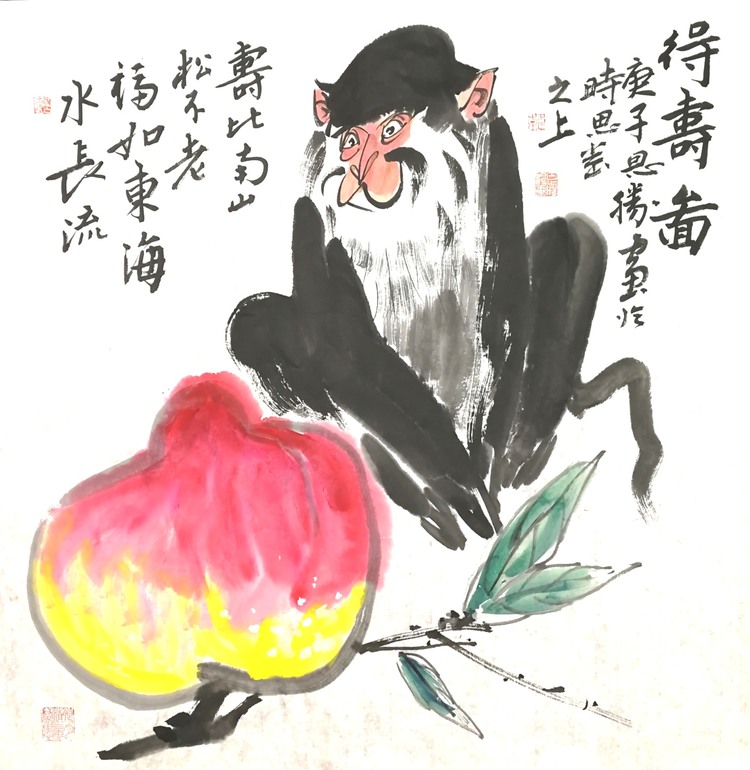 得壽图
庚子思勝畫於
時思齋
之上
壽比南山
松不老
福如東海
水長流